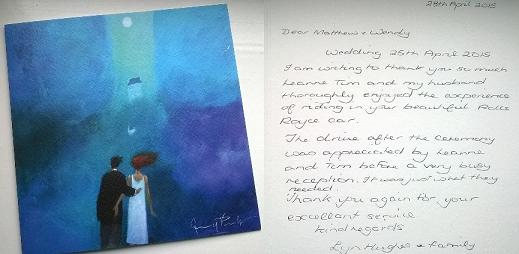 28th April 2015
Dear Matthew & Wendy
Wedding 25th April 2015
I am writing to thank you so much
Leanne Tim and my husband
thoroughly enjoyed the experience
of riding in your beautiful Rolls
Royce car.
The drive after the ceremony
was appreciated by Leanne
and Tim before a very busy
reception. It was just what they
needed.
Thank you again for your
excellent service
kind regards
Lyn Hughes & family